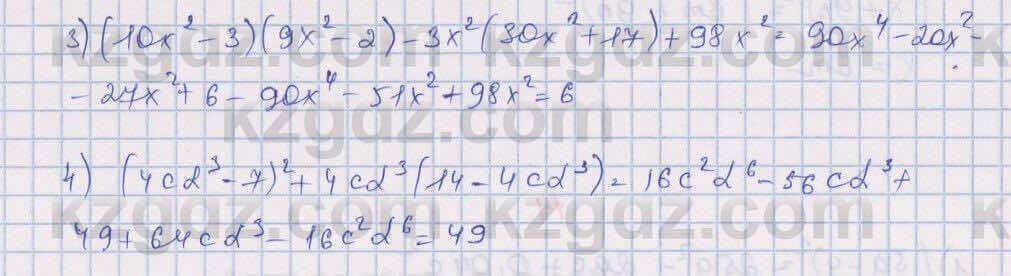 3) (10x² - 3)(9x² - 2) - 3x²(30x² + 17) + 98x² = 90x⁴ - 20x² -
- 27x² + 6 - 90x⁴ - 51x² + 98x² = 6
kzgdz.com
4) (4cd³ - 7)² + 4cd³(14 - 4cd³) = 16c²d⁶ - 56cd³ +
49 + 64cd³ - 16c²d⁶ = 49